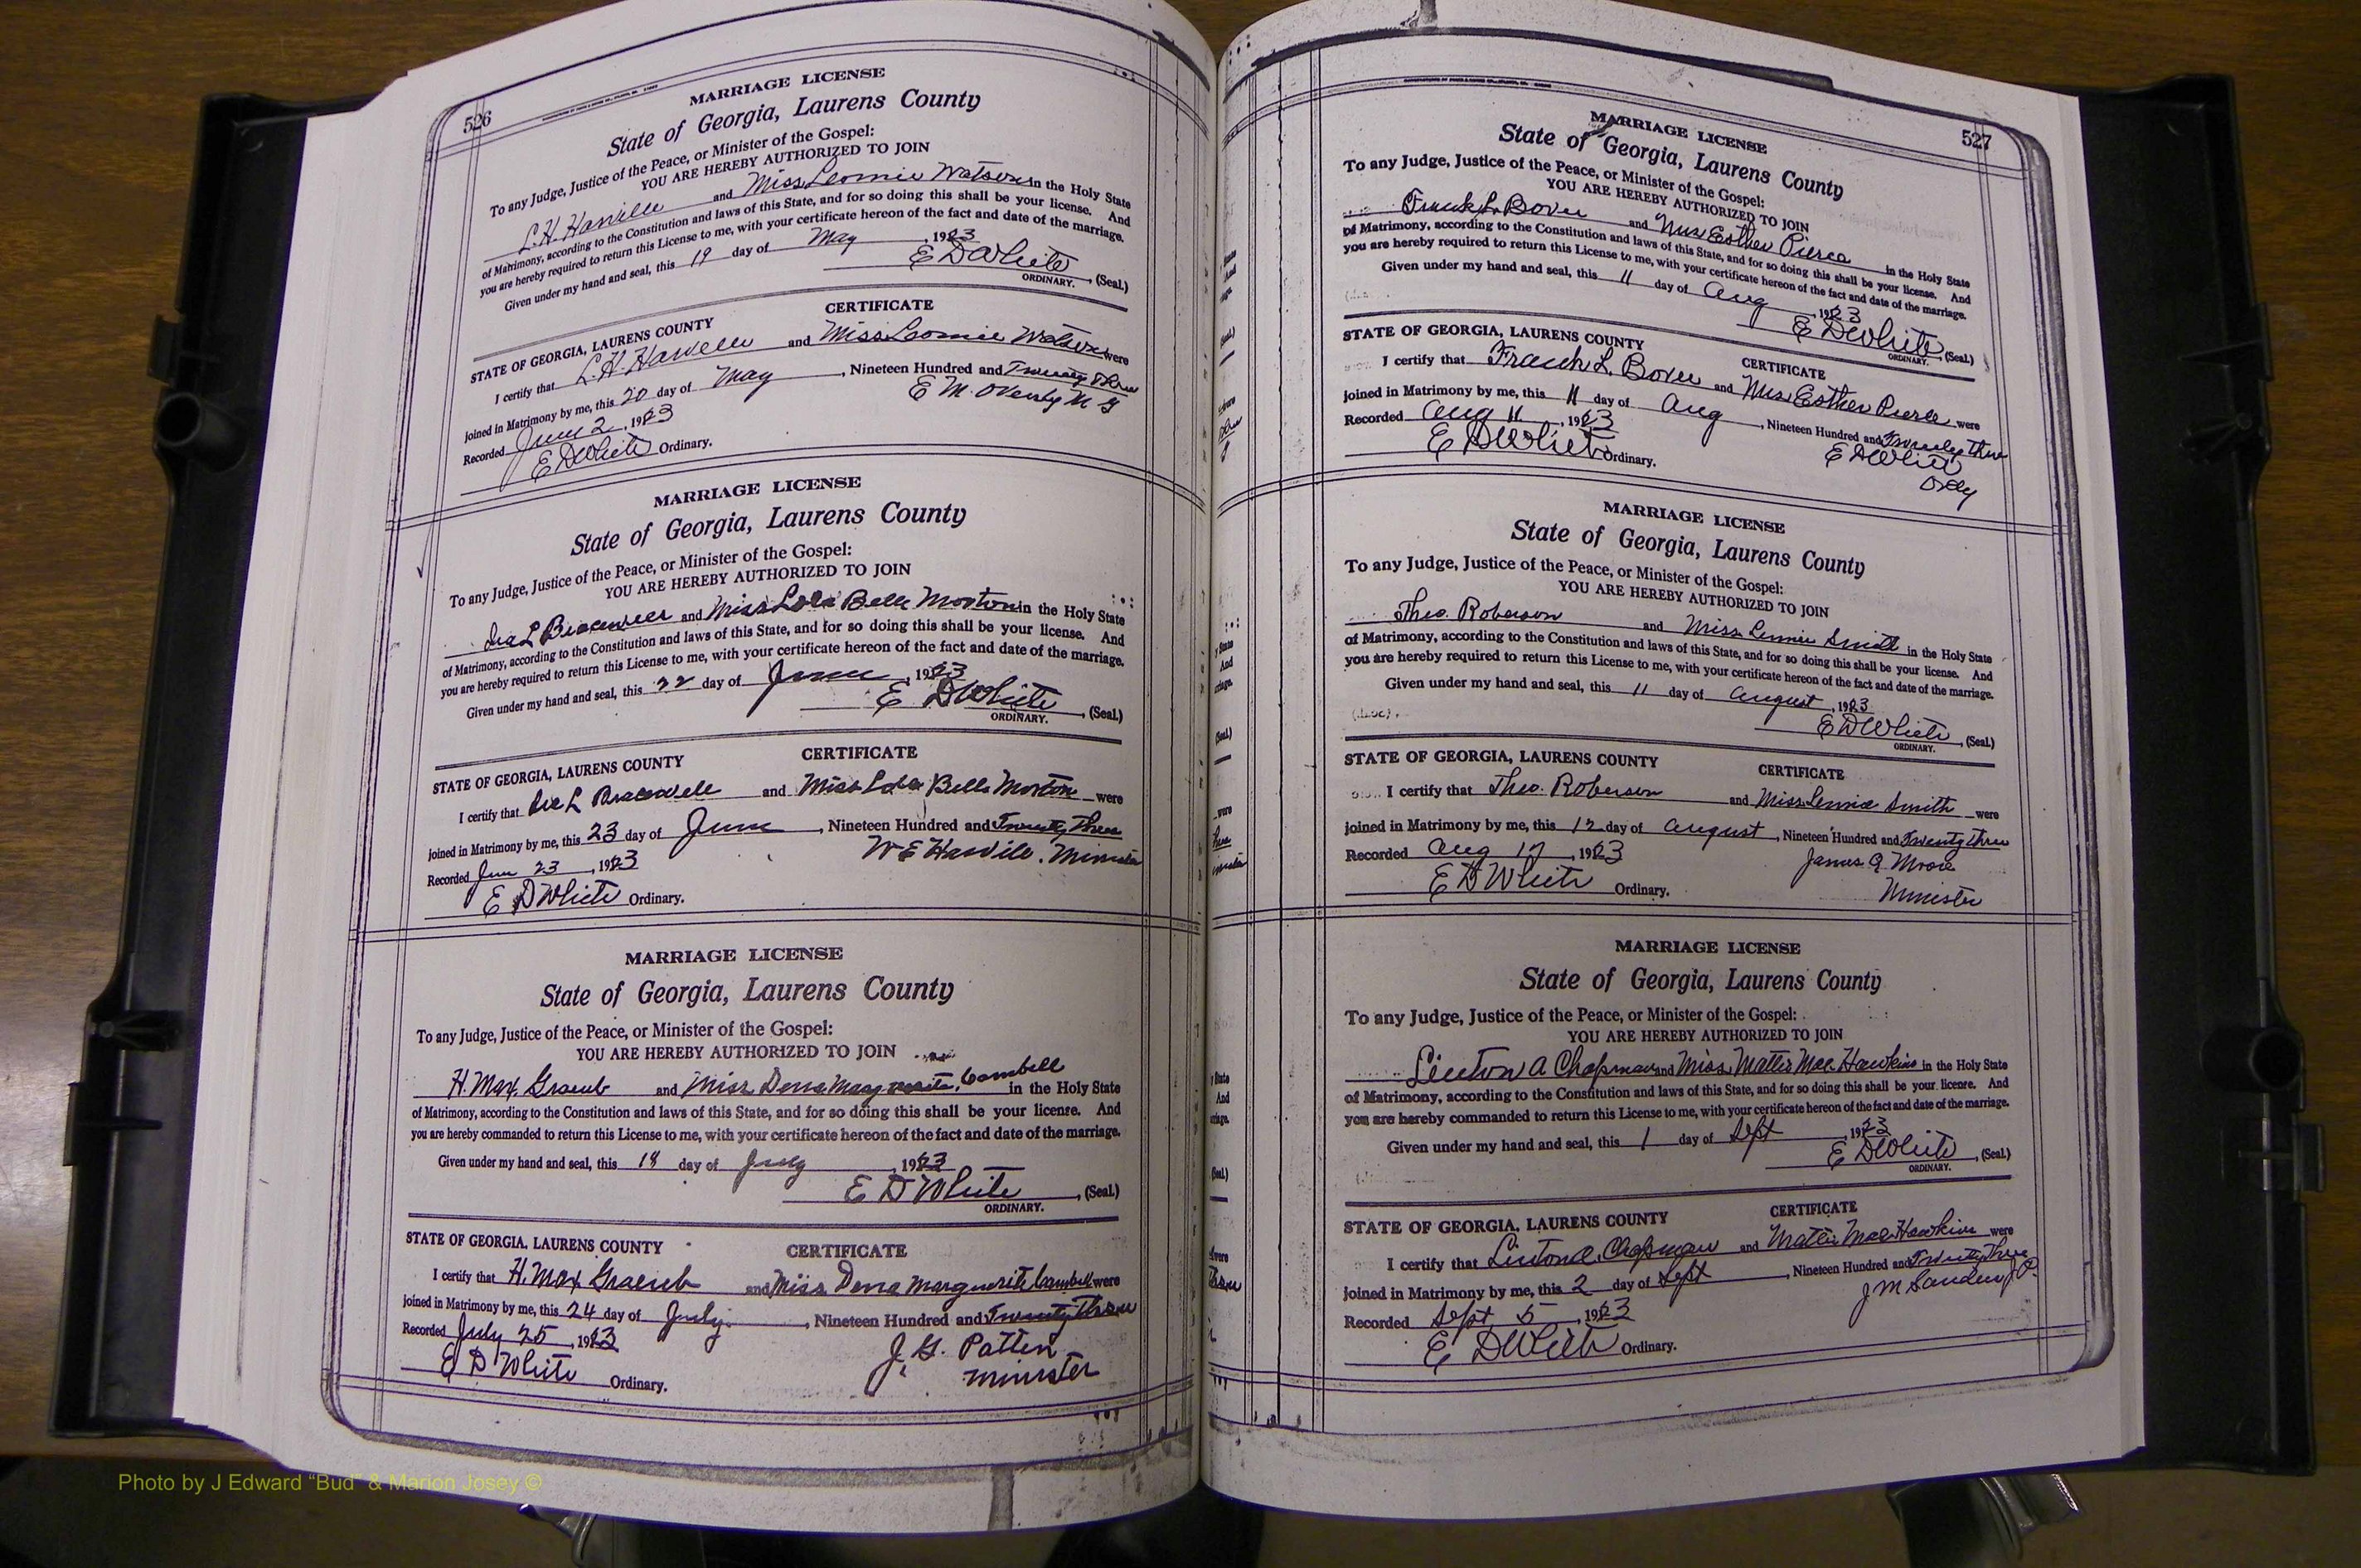 526
MARRIAGE LICENSE
State of Georgia, Laurens County
To any Judge, Justice of the Peace, or Minister of the Gospel:
YOU ARE HEREBY AUTHORIZED TO JOIN
L. H. and Miss Leomie Watson in the Holy State
of Matrimony, according to the Constitution and laws of this State, and for so doing this shall be your license. And
you are hereby required to return this License to me, with your certificate hereon of the fact and date of the marriage.
Given under my hand and seal, this 19 day of May, 1923
E D White, (Seal.)
ORDINARY.
CERTIFICATE
STATE OF GEORGIA, LAURENS COUNTY
I certify that L. H. and Miss Leomie Watson were
joined in Matrimony by me, this 20 day of May, Nineteen Hundred and Twenty Three
E M. Overby M G
Recorded June 2, 1923
E D White Ordinary.
MARRIAGE LICENSE
State of Georgia, Laurens County
To any Judge, Justice of the Peace, or Minister of the Gospel:
YOU ARE HEREBY AUTHORIZED TO JOIN
Ira L Bracewell and Miss Lola Belle Morton in the Holy State
of Matrimony, according to the Constitution and laws of this State, and for so doing this shall be your license. And
you are hereby required to return this License to me, with your certificate hereon of the fact and date of the marriage.
Given under my hand and seal, this 22 day of June, 1923
E D White, (Seal.)
ORDINARY.
CERTIFICATE
STATE OF GEORGIA, LAURENS COUNTY
I certify that Ira L Bracewell and Miss Lola Belle Morton were
joined in Matrimony by me, this 23 day of June, Nineteen Hundred and Twenty Three
W E Minister
Recorded Jun 23, 1923
E D White Ordinary.
MARRIAGE LICENSE
State of Georgia, Laurens County
To any Judge, Justice of the Peace, or Minister of the Gospel:
YOU ARE HEREBY AUTHORIZED TO JOIN
H. Max. Graeub and Miss Dena Marguerite Cambell in the Holy State
of Matrimony, according to the Constitution and laws of this State, and for so doing this shall be your license. And
you are hereby commanded to return this License to me, with your certificate hereon of the fact and date of the marriage.
Given under my hand and seal, this 18 day of July, 1923
E D White, (Seal.)
ORDINARY.
STATE OF GEORGIA. LAURENS COUNTY CERTIFICATE
I certify that H. Max Graeub and Miss Dena Marguerite Cambell were
joined in Matrimony by me, this 24 day of July, Nineteen Hundred and Twenty Three
Recorded July 25, 1923 J. G. Patten
E D White Ordinary. minister
527
MARRIAGE LICENSE
State of Georgia, Laurens County
To any Judge, Justice of the Peace, or Minister of the Gospel:
YOU ARE HEREBY AUTHORIZED TO JOIN
Frank L. Bover and Mrs Esther Pierce in the Holy State
of Matrimony, according to the Constitution and laws of this State, and for so doing this shall be your license. And
you are hereby required to return this License to me, with your certificate hereon of the fact and date of the marriage.
Given under my hand and seal, this 11 day of Aug, 1923
E D White, (Seal.)
ORDINARY.
STATE OF GEORGIA, LAURENS COUNTY CERTIFICATE
I certify that Frank L. Bover and Mrs Esther Pierce were
joined in Matrimony by me, this 11 day of Aug, Nineteen Hundred and Twenty three
Recorded Aug 11, 1923 E D White
E D White Ordinary. Ordy
MARRIAGE LICENSE
State of Georgia, Laurens County
To any Judge, Justice of the Peace, or Minister of the Gospel:
YOU ARE HEREBY AUTHORIZED TO JOIN
Theo. Roberson and Miss Lennie Smith in the Holy State
of Matrimony, according to the Constitution and laws of this State, and for so doing this shall be your license. And
you are hereby required to return this License to me, with your certificate hereon of the fact and date of the marriage.
Given under my hand and seal, this 11 day of August, 1923
E D White, (Seal.)
ORDINARY.
STATE OF GEORGIA, LAURENS COUNTY CERTIFICATE
I certify that Theo. Roberson and Miss Lennie Smith were
joined in Matrimony by me, this 12 day of August, Nineteen Hundred and Twenty three
Recorded Aug 17, 1923 James A Moore
E D White Ordinary. Minister
MARRIAGE LICENSE
State of Georgia, Laurens County
To any Judge, Justice of the Peace, or Minister of the Gospel:
YOU ARE HEREBY AUTHORIZED TO JOIN
Linton A Chapman and Miss Mattie Mae Hawkins in the Holy State
of Matrimony, according to the Constitution and laws of this State, and for so doing this shall be your license. And
you are hereby commanded to return this License to me, with your certificate hereon of the fact and date of the marriage.
Given under my hand and seal, this 1 day of Sept, 1923
E D White, (Seal.)
ORDINARY.
STATE OF GEORGIA, LAURENS COUNTY CERTIFICATE
I certify that Linton A. Chapman and Mattie Mae Hawkins were
joined in Matrimony by me, this 2 day of Sept, Nineteen Hundred and Twenty Three
Recorded Sept. 5, 1923 J M J.P.
E D White Ordinary.
Photo by J Edward "Bud" & Marion Josey ©